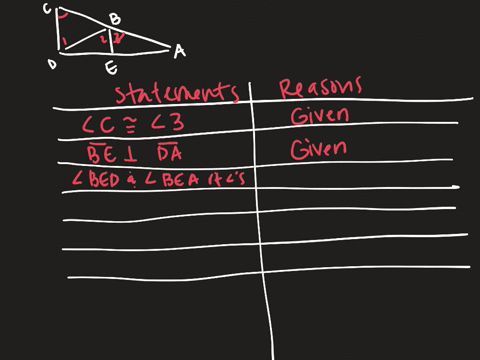 C
B
1 2 3
D E A
Statements Reasons
∠C ≅ ∠3 Given
BE ⊥ DA Given
∠BED & ∠BEA rt ∠'s